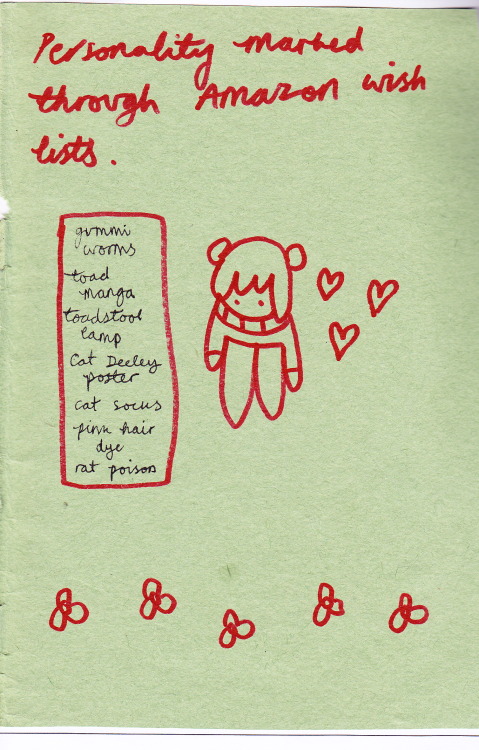 Personality marked
through Amazon wish
lists.
gummi
worms
toad
manga
toadstool
lamp
Cat Deeley
poster
cat socks
pink hair
dye
rat poison